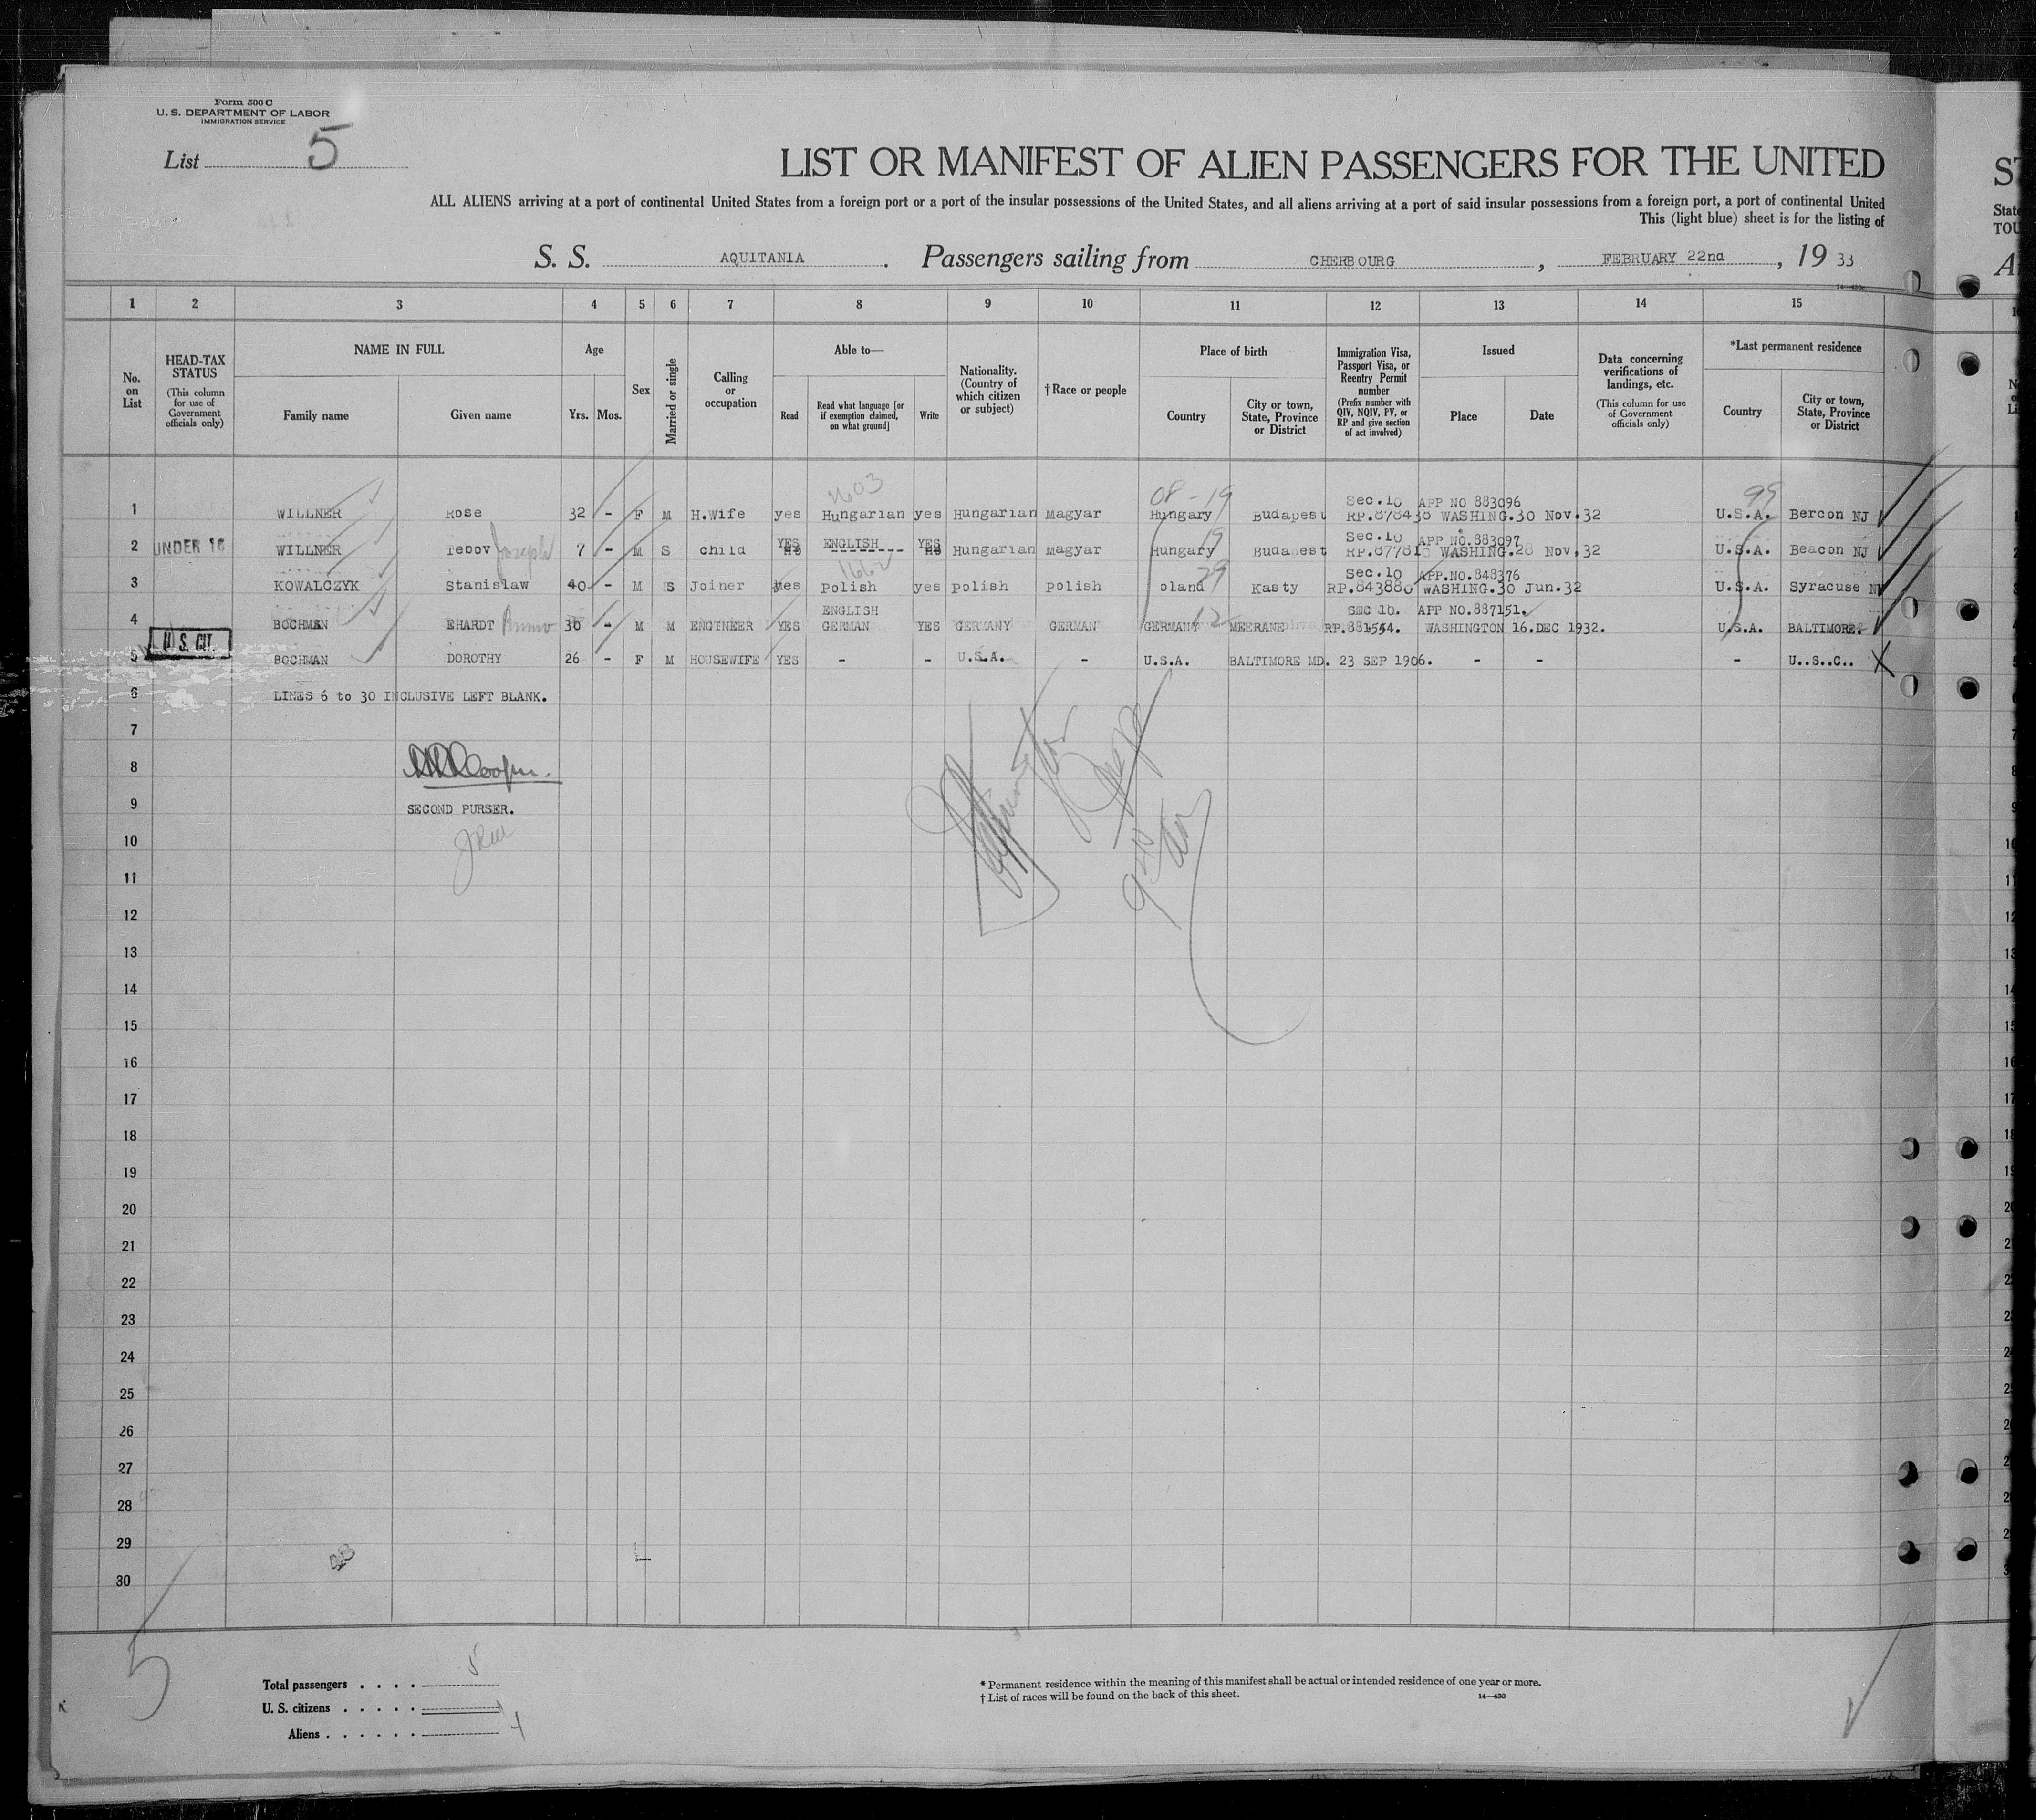 Form 500 C
U. S. DEPARTMENT OF LABOR
IMMIGRATION SERVICE
List 5
LIST OR MANIFEST OF ALIEN PASSENGERS FOR THE UNITED
ALL ALIENS arriving at a port of continental United States from a foreign port or a port of the insular possessions of the United States, and all aliens arriving at a port of said insular possessions from a foreign port, a port of continental United
This (light blue) sheet is for the listing of
S. S. AQUITANIA. Passengers sailing from CHERBOURG, FEBRUARY 22nd, 19 33
14—430
1 2 3 4 5 6 7 8 9 10 11 12 13 14 15
No. on List
HEAD-TAX STATUS (This column for use of Government officials only)
NAME IN FULL
Family name
Given name
Age
Yrs. Mos.
Sex
Married or single
Calling or occupation
Able to—
Read
Read what language [or if exemption claimed, on what ground]
Write
Nationality. (Country of which citizen or subject)
† Race or people
Place of birth
Country
City or town, State, Province or District
Immigration Visa, Passport Visa, or Reentry Permit number (Prefix number with QIV, NQIV, PV, or RP and give section of act involved)
Issued
Place
Date
Data concerning verifications of landings, etc. (This column for use of Government officials only)
*Last permanent residence
Country
City or town, State, Province or District
08-19 99
Sec.10 APP NO 883096
1 WILLNER Rose 32 - F M H.Wife yes Hungarian yes Hungarian Magyar Hungary Budapest RP.878430 WASHING.30 Nov.32 U.S.A. Bercon NJ
YES ENGLISH YES 19 Sec.10 APP NO.883097
2 UNDER 16 WILLNER Tebov Joseph 7 - M S child No No Hungarian Magyar Hungary Budapest RP.877810 WASHING.28 Nov,32 U.S.A. Beacon NJ
1662 29 Sec.10 APP.NO.848376
3 KOWALCZYK Stanislaw 40 - M S Joiner yes Polish yes polish polish oland Kasty RP.843880 WASHING.30 Jun.32 U.S.A. Syracuse
ENGLISH SEC 10. APP NO.887151.
4 BOCHMAN EHARDT Bruno 30 - M M ENGINEER YES GERMAN YES GERMANY GERMAN GERMANY 12 MEERANE RP.881554. WASHINGTON 16.DEC 1932. U.S.A. BALTIMORE.
U.S. CIT.
5 BOCHMAN DOROTHY 26 - F M HOUSEWIFE YES - - U.S.A. - U.S.A. BALTIMORE MD. 23 SEP 1906. - - - U..S..C.. X
6 LINES 6 to 30 INCLUSIVE LEFT BLANK.
7
8
9 SECOND PURSER.
10
11
12
13
14
15
16
17
18
19
20
21
22
23
24
25
26
27
28
29
30
5
Total passengers . . . . 5
U. S. citizens . . . . . 1
Aliens . . . . . . 4
* Permanent residence within the meaning of this manifest shall be actual or intended residence of one year or more.
† List of races will be found on the back of this sheet.
14—430